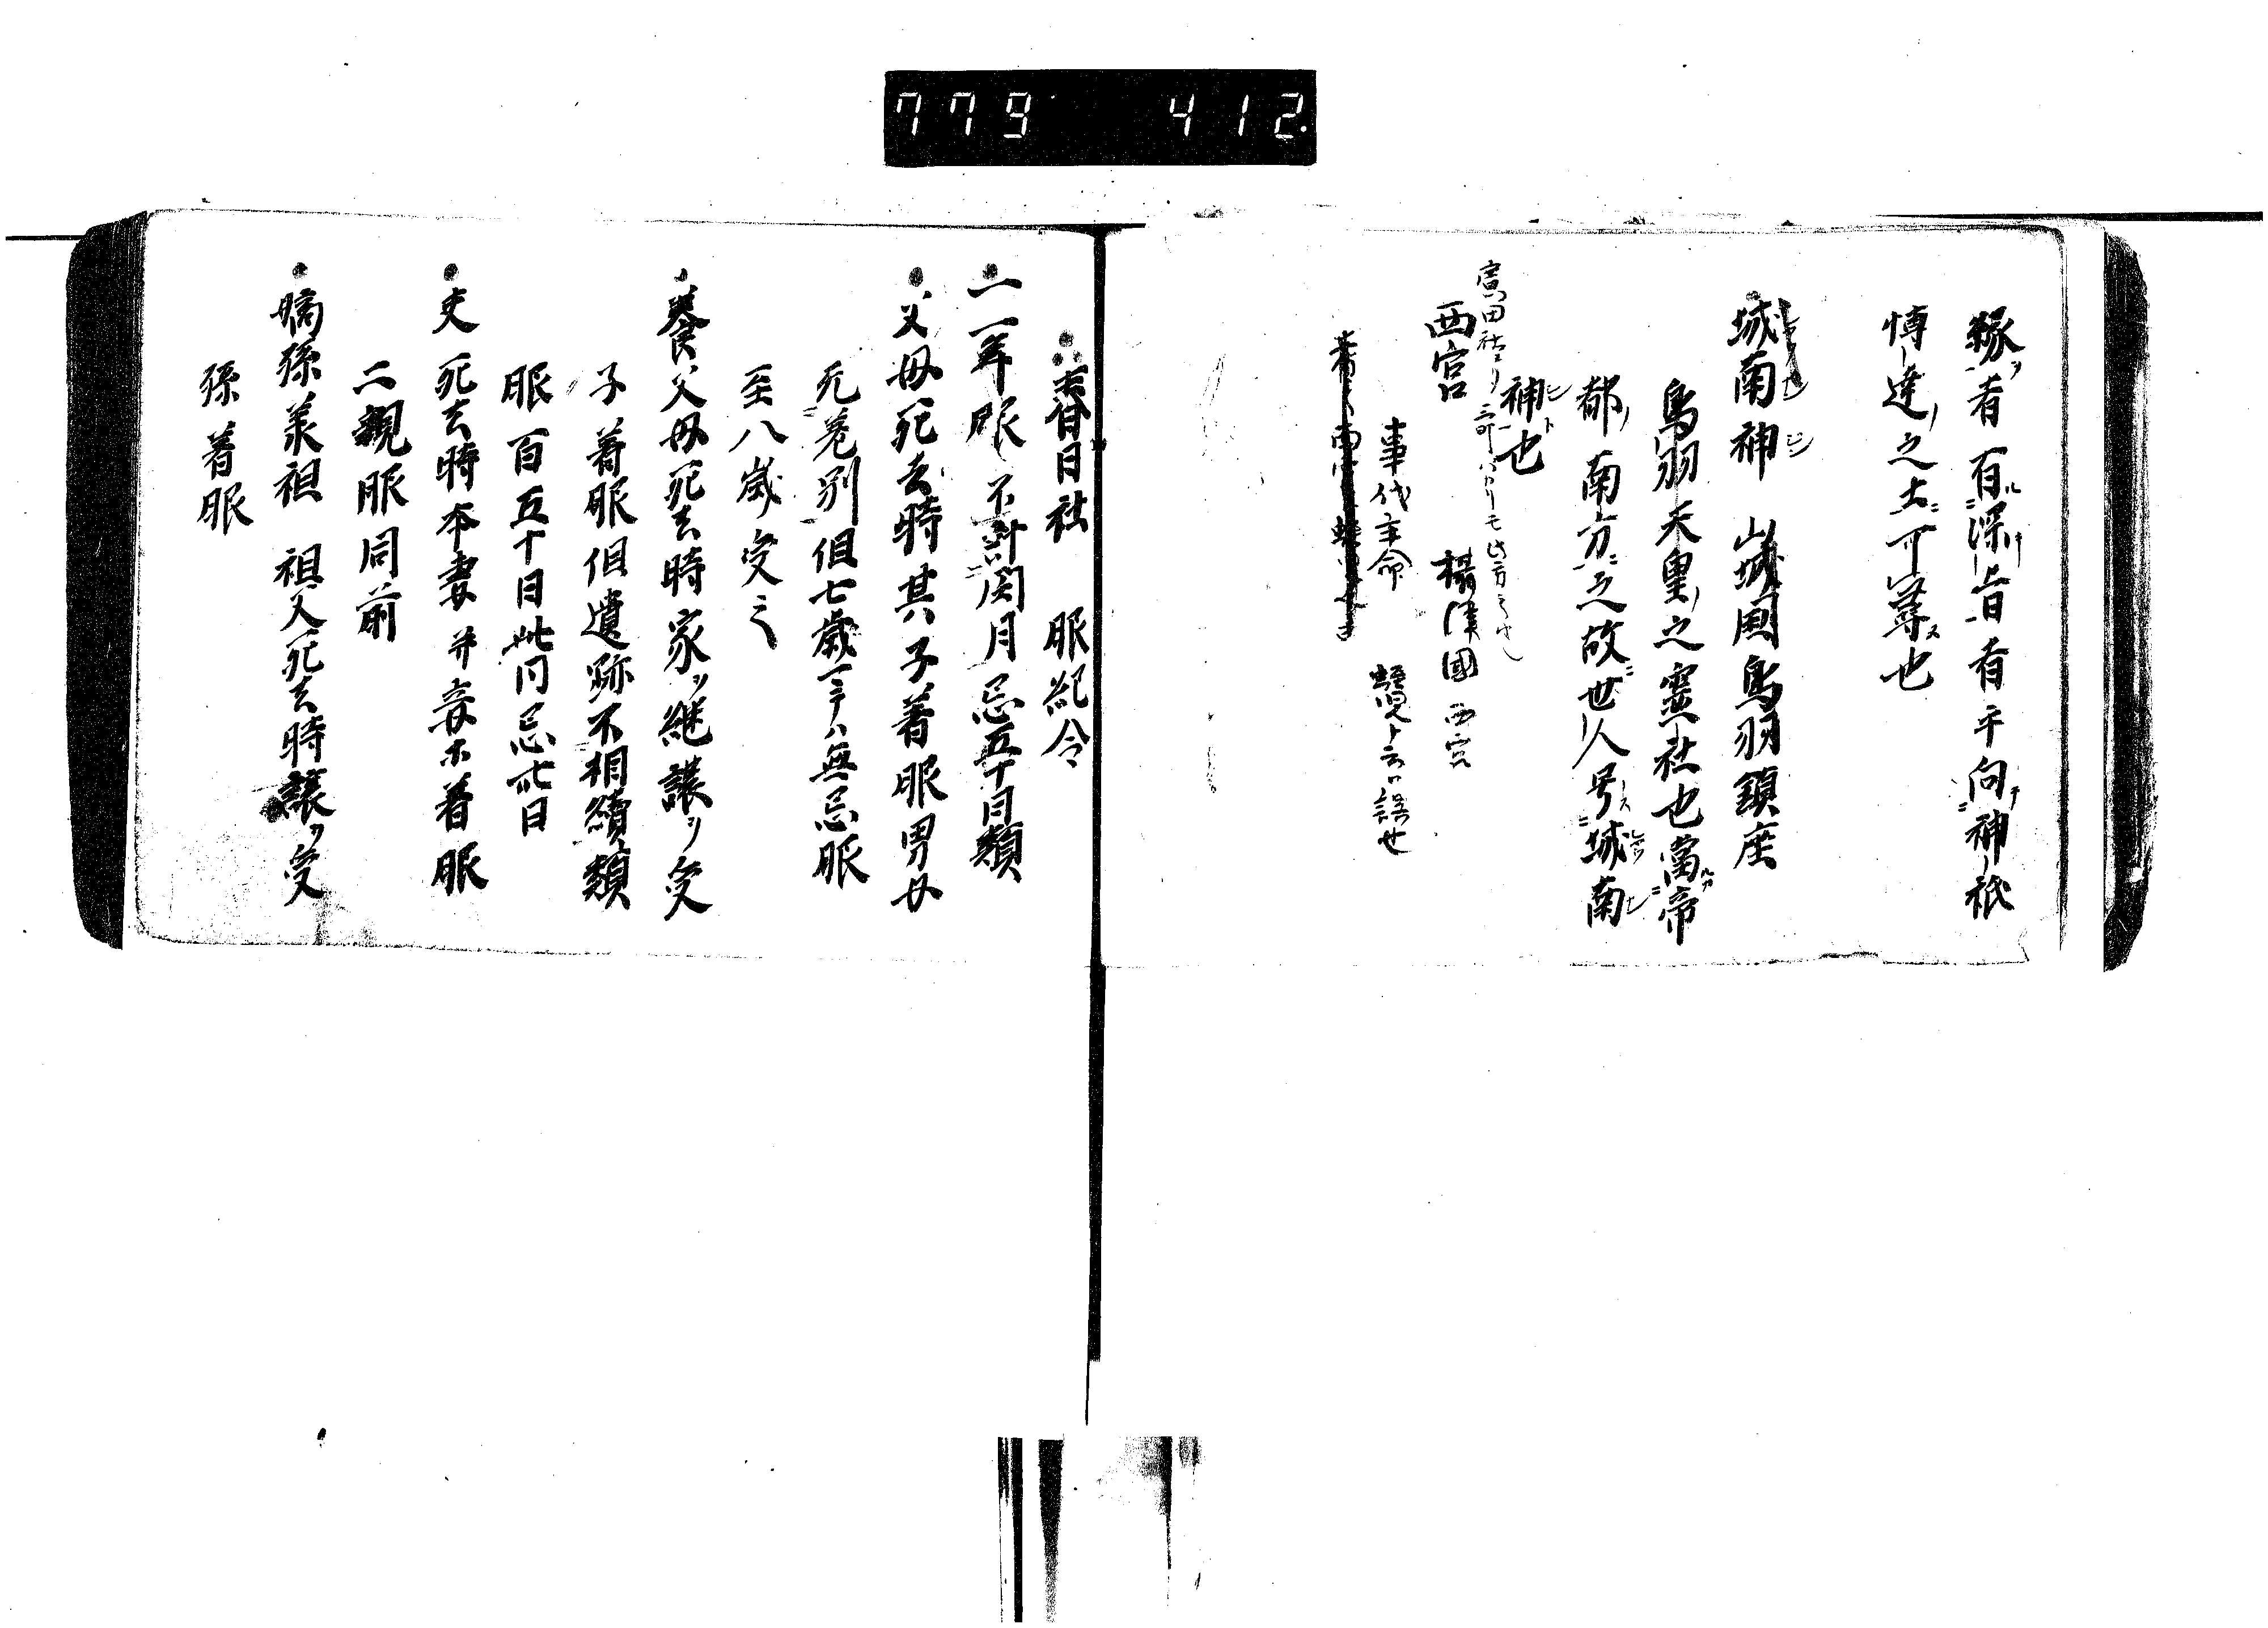 779 412
縁ヲ者有ル深キ旨有乎向テ神祇ニ
博達ノ之士ニ可尋ヌ也
城南神 山城国鳥羽鎮座
鳥羽天皇ノ之霊社也當帝
都ノ南方ニ之故ニ世人号ス城南
神ト也
西宮 摂津國西宮
事代主命 蛭児ト云ハ誤也
春日社 服紀令
一一年服 不計閏月忌五十日類
父母死去時其子着服男女
无差別但七歳マテハ無忌服
至八歳受之
養父母死去時家ヲ継譲ヲ受
子着服但遺跡不相續類
服百五十日此内忌卅日
夫死去時本妻并妾亦着服
二親服同前
嫡孫承祖 祖父死去時譲ヲ受
孫着服